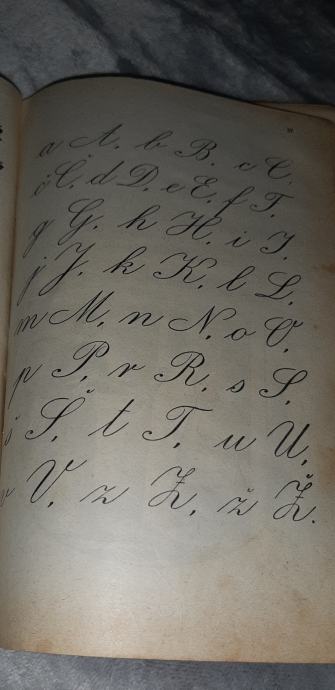 a A, b B, c C,
č Č, d D, e E, f F,
g G, h H, i I,
j J, k K, l L,
m M, n N, o O,
p P, r R, s S,
š Š, t T, u U,
v V, z Z, ž Ž.